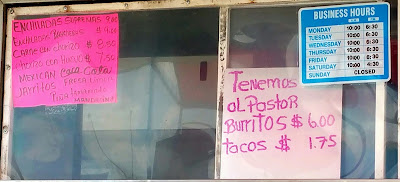 ENCHILADAS SUPREMAS 9.00
CARNE con chorizo $ 8.50
con Huevo $ 7.50
MEXICAN COCA
JARRITOS
Tenemos
al Pastor
Burritos $ 6.00
tacos $ 1.75
BUSINESS HOURS
MONDAY 10:00 6:30
TUESDAY 10:00 6:30
WEDNESDAY 10:00 6:30
THURSDAY 10:00 6:30
FRIDAY 10:00 6:30
SATURDAY 10:00 4:30
SUNDAY CLOSED